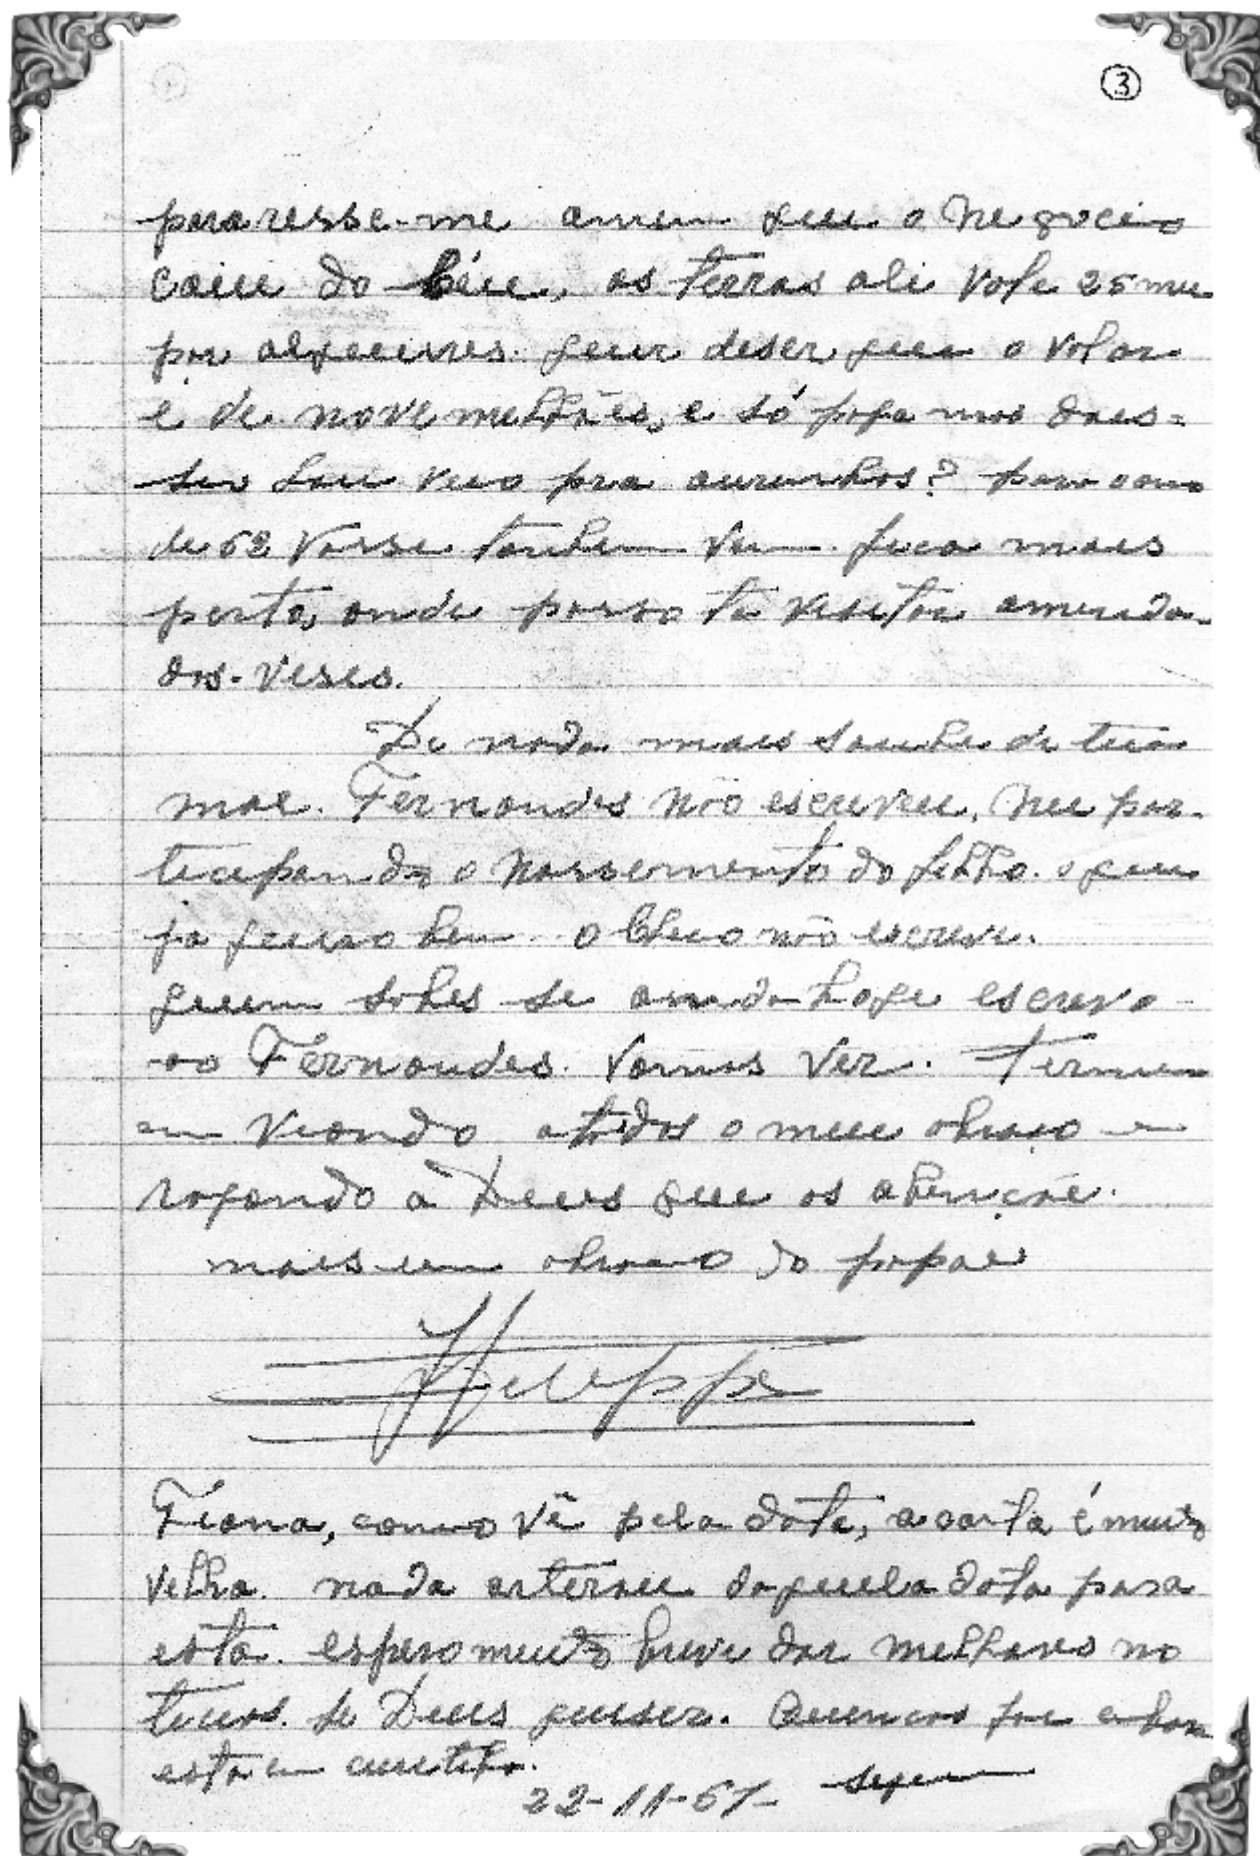 3
paresse-me que o Negocio
Caiu do Céu, as terras ali Vale 25 mil
por alqueires. quer diser que o Valor
é de nove milhões, e só paga mos dois =
Vou pra ourinhos? para o ano
de 62 Vosse tambem Vem. fica mais
perto, onde posso te visitar amiuda
das Veses.
De nada mais soube de tua
mae. Fernandes não escreveu, Nem par-
ticipando o Nascemento do filho. o que
ja quiso bem. o Chico não escreve.
quem sabes se ainda hoje escrevo
ao Fernandes. Vamos Ver. Termino
em Viando a todos o meu abraço e
rogando à Deus que os abençoe.
mais um abraso do papae
Felippe
Tiana, como vê pela data, a carta é muito
velha. nada arterou daquela data para
esta. espero muito breve dar melhores no
ticias. se Deus quiser. foi embora
esta em curitiba.
22-11-61- segue